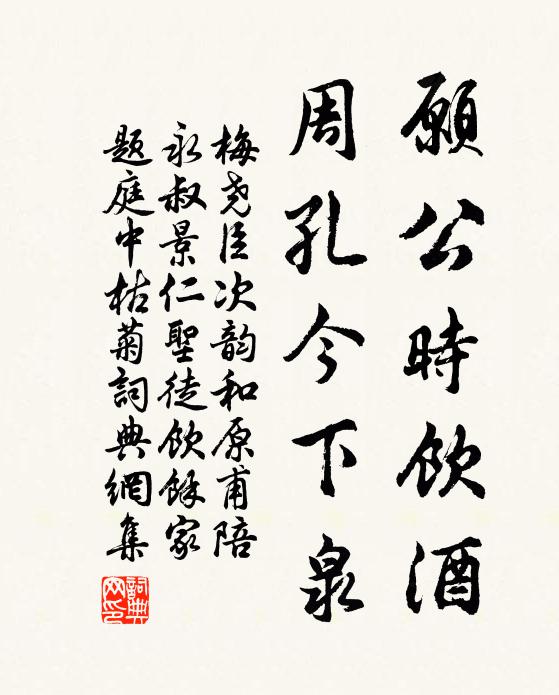 願公時飲酒
周孔今下泉
梅尧臣次韵和原甫陪
永叔景仁聖徒飲餘家
题庭中枯菊詞典網集
詞典
网印